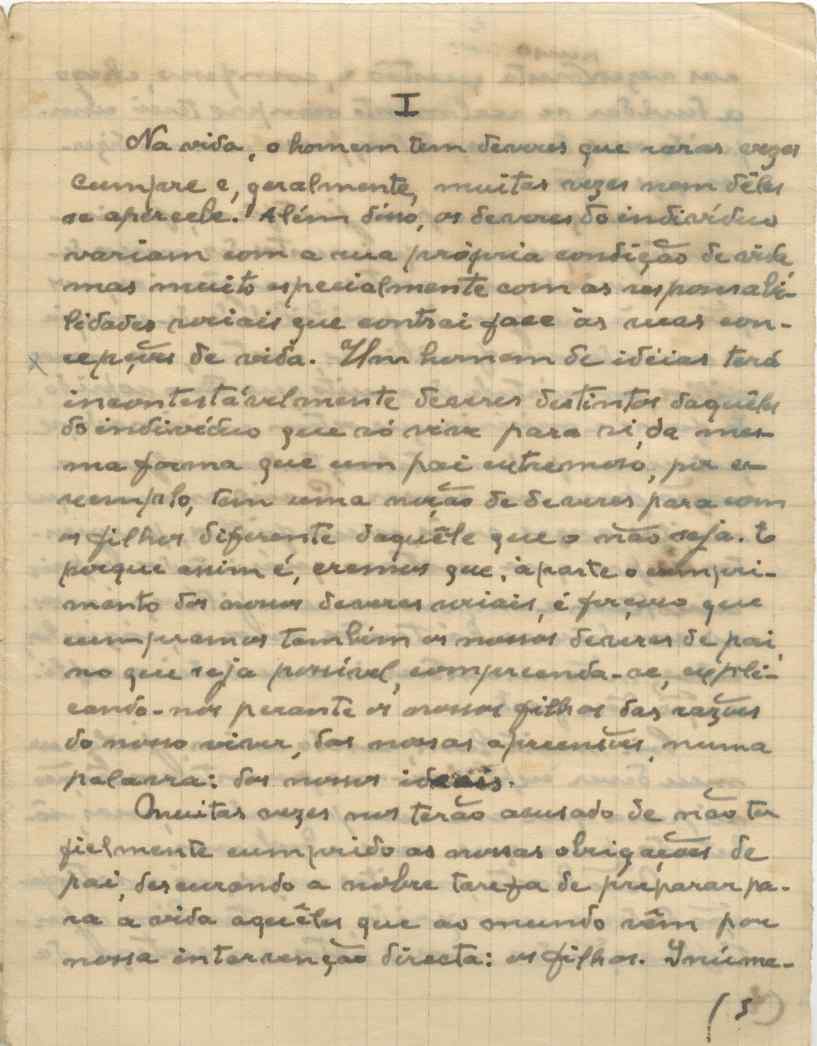 I
Na vida, o homem tem deveres que raras vezes
cumpre e, geralmente, muitas vezes nem dêles
se apercebe. Além disso, os deveres do indivíduo
variam com a sua própria condição de vida
mas muito especialmente com as responsabi-
lidades sociais que contrai face às suas con-
cepções de vida. Um homem de idéias terá
incontestávelmente deveres distintos daquêles
do indivíduo que só vive para si, da mes-
ma forma que um pai extremoso, por e-
xemplo, tem uma noção de deveres para com
os filhos diferente daquêle que o não seja. E
porque assim é, cremos que, àparte o cumpri-
mento dos nossos deveres sociais, é forçoso que
cumpramos também os nossos deveres de pai,
no que seja possível, compreenda-se, expli-
cando-nos perante os nossos filhos das razões
do nosso viver, das nossas apreensões, numa
palavra: dos nossos ideais.
Muitas vezes nos terão acusado de não ter
fielmente cumprido as nossas obrigações de
pai, descurando a nobre tarefa de preparar pa-
ra a vida aquêles que ao mundo vêm por
nossa intervenção directa: os filhos. Inúme-